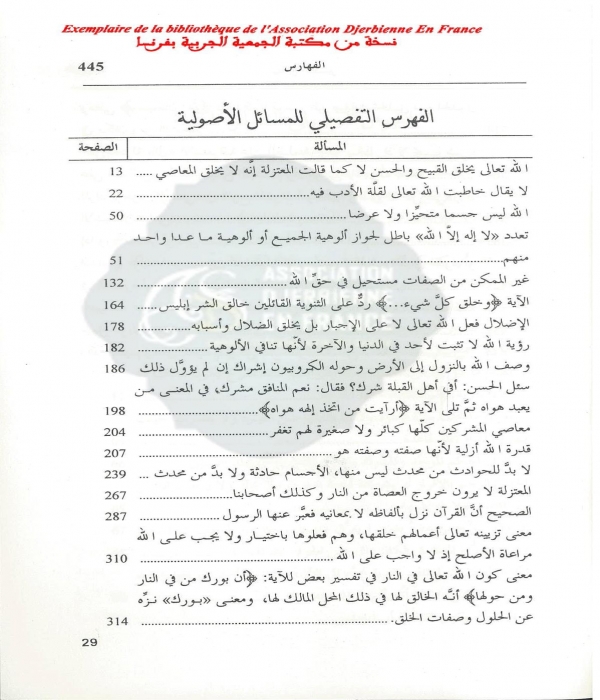 Exemplaire de la bibliothèque de l'Association Djerbienne En France
نسخة من مكتبة الجمعية الجربية بفرنسا
445 الفهارس
الفهرس التفصيلي للمسائل الأصولية
المسألة الصفحة
الله تعالى يخلق القبيح والحسن لا كما قالت المعتزلة إنَّه لا يخلق المعاصي ..... 13
لا يقال خاطبت الله تعالى لقلّة الأدب فيه 22
الله ليس جسما متحيِّزا ولا عرضا 50
تعدد «لا إله إلاَّ الله» باطل لجواز ألوهية الجميع أو ألوهية ما عدا واحد
منهم 51
غير الممكن من الصفات مستحيل في حقِّ الله 132
الآية ﴿وخلق كلَّ شيء...﴾ ردٌّ على الثنوية القائلين خالق الشر إبليس 164
الإضلال فعل الله تعالى لا على الإجبار بل يخلق الضلال وأسبابه 178
رؤية الله لا تثبت لأحد في الدنيا والآخرة لأنَّها تنافي الألوهية 182
وصف الله بالنزول إلى الأرض وحوله الكروبيون إشراك إن لم يؤوَّل ذلك 186
سئل الحسن: أفي أهل القبلة شرك؟ فقال: نعم المنافق مشرك، في المعنى من
يعبد هواه ثمَّ تلى الآية ﴿أرآيت من اتخذ إلهه هواه﴾ 198
معاصي المشركين كلّها كبائر ولا صغيرة لهم تغفر 204
قدرة الله أزلية لأنَّها صفته وصفته هو 207
لا بدَّ للحوادث من محدث ليس منها، الأجسام حادثة ولا بدَّ من محدث ... 239
المعتزلة لا يرون خروج العصاة من النار وكذلك أصحابنا 267
الصحيح أنَّ القرآن نزل بألفاظه لا بمعانيه فعبَّر عنها الرسول 287
معنى تزيينه تعالى أعمالهم خلقها، وهم فعلوها باختيار ولا يجب على الله
مراعاة الأصلح إذ لا واجب على الله 310
معنى كون الله تعالى في النار في تفسير بعض للآية: ﴿أن بورك من في النار
ومن حولها﴾ أنَّه الخالق لها في ذلك المحل المالك لها، ومعنى «بورك» نزِّه
عن الحلول وصفات الخلق. 314
29